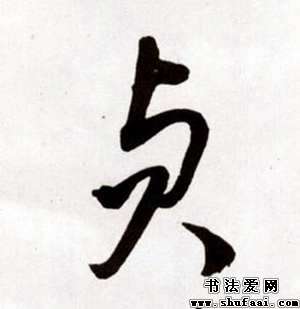 贞
书法爱网
www.shufaai.com